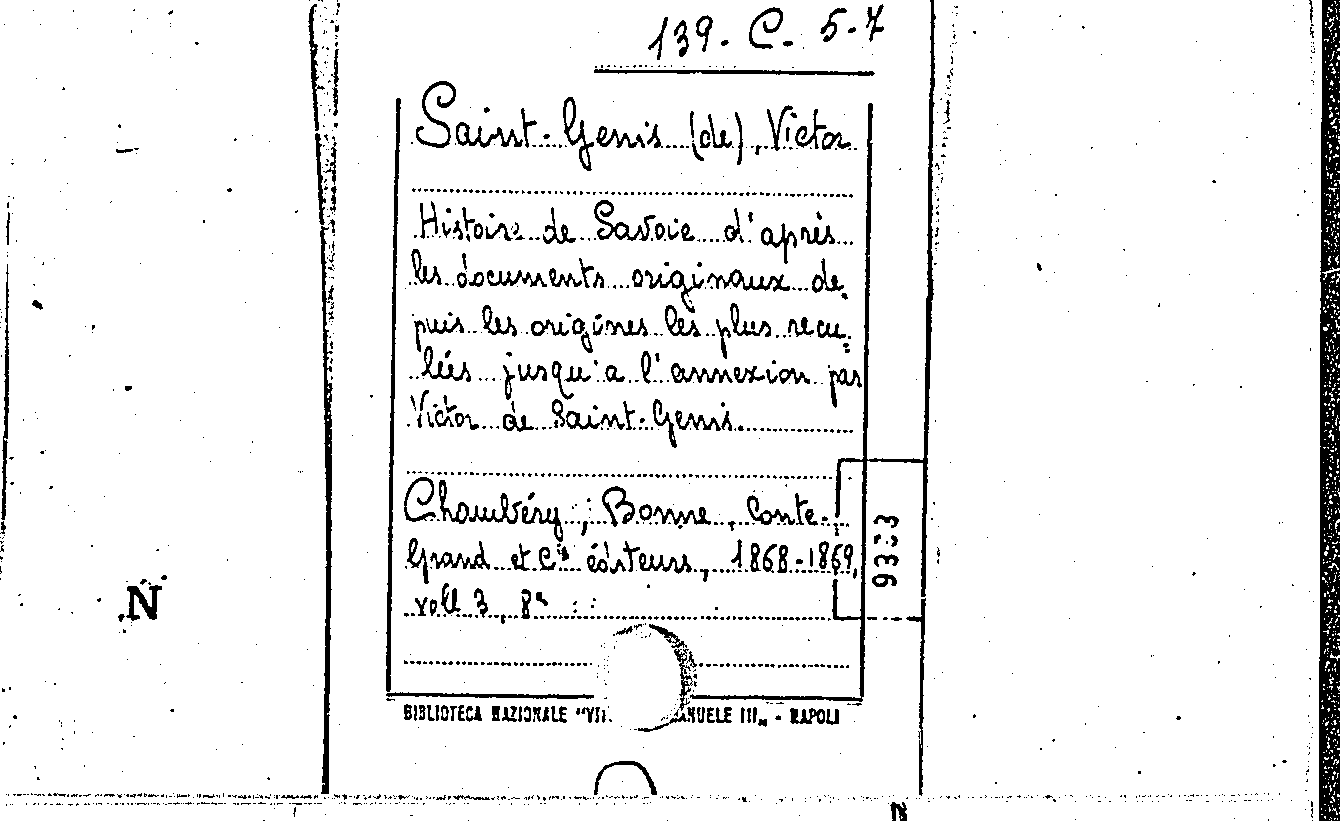 139. C. 5-7
Saint-Genis (de), Victor
Histoire de Savoie d'après
les documents originaux de-
puis les origines les plus recu-
lées jusqu'a l'annexion par
Victor de Saint-Genis.
Chambéry; Bonne, Conte-
Grand et Cie éditeurs, 1868-1869,
voll 3, 8°
BIBLIOTECA NAZIONALE "VI ANUELE III„ - NAPOLI
N
N